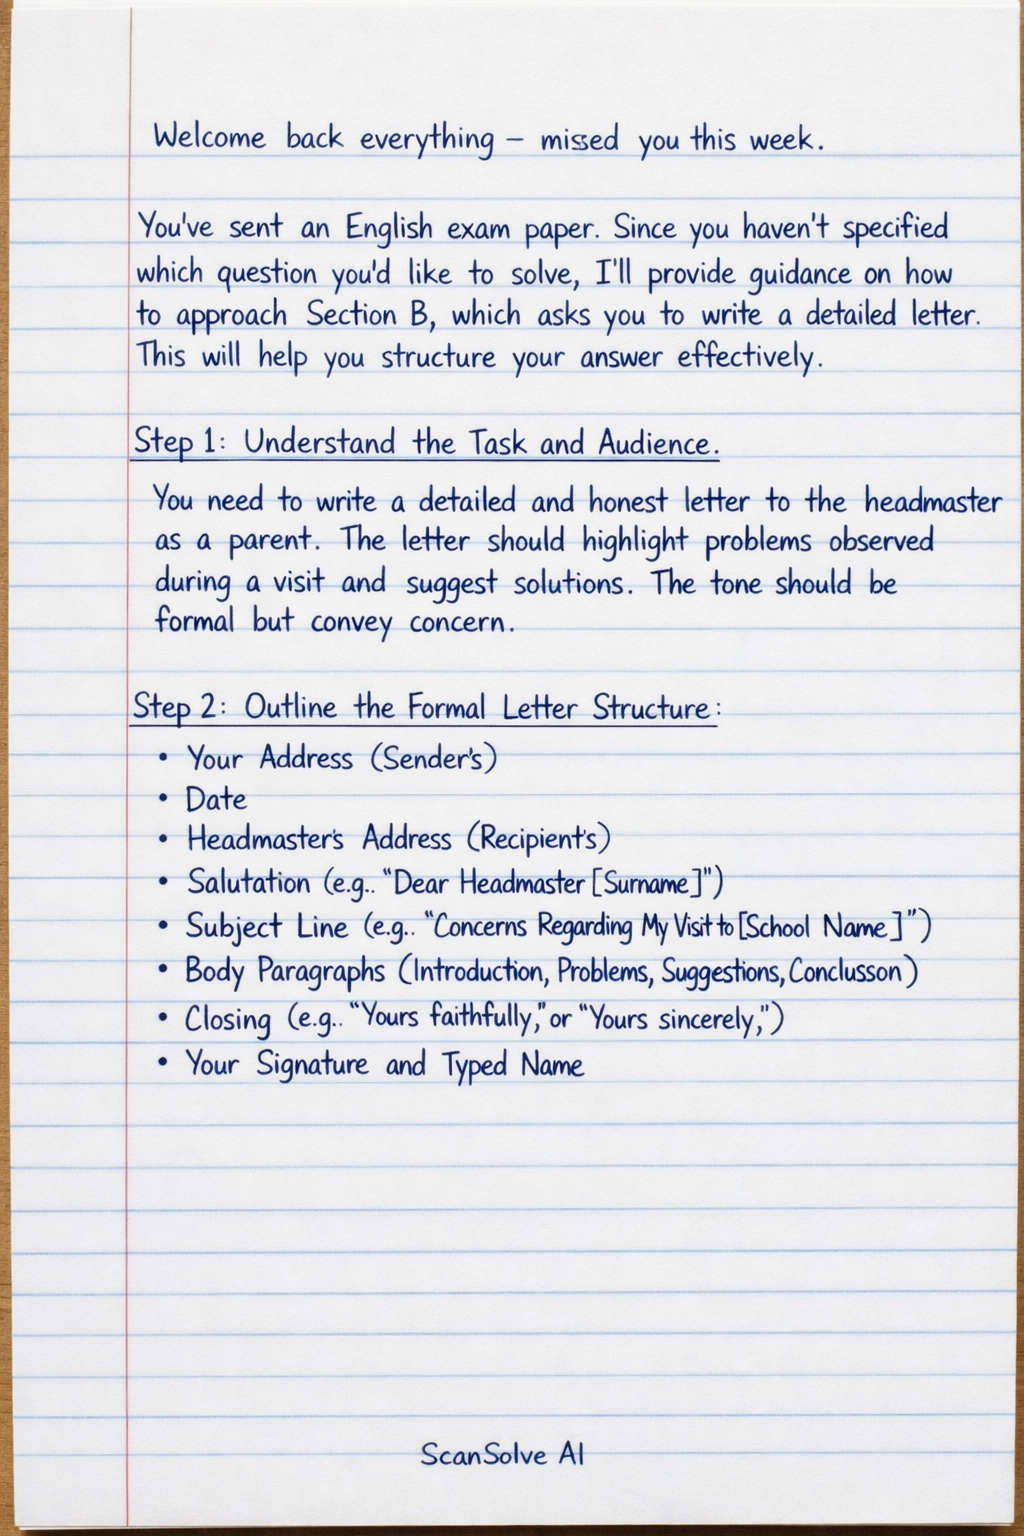 Welcome back everything – missed you this week.
You've sent an English exam paper. Since you haven't specified
which question you'd like to solve, I'll provide guidance on how
to approach Section B, which asks you to write a detailed letter.
This will help you structure your answer effectively.
Step 1: Understand the Task and Audience.
You need to write a detailed and honest letter to the headmaster
as a parent. The letter should highlight problems observed
during a visit and suggest solutions. The tone should be
formal but convey concern.
Step 2: Outline the Formal Letter Structure:
• Your Address (Sender's)
• Date
• Headmaster's Address (Recipient's)
• Salutation (e.g.. "Dear Headmaster [Surname]")
• Subject Line (e.g.. "Concerns Regarding My Visit to [School Name]")
• Body Paragraphs (Introduction, Problems, Suggestions, Conclusson)
• Closing (e.g.. "Yours faithfully," or "Yours sincerely,")
• Your Signature and Typed Name
ScanSolve AI